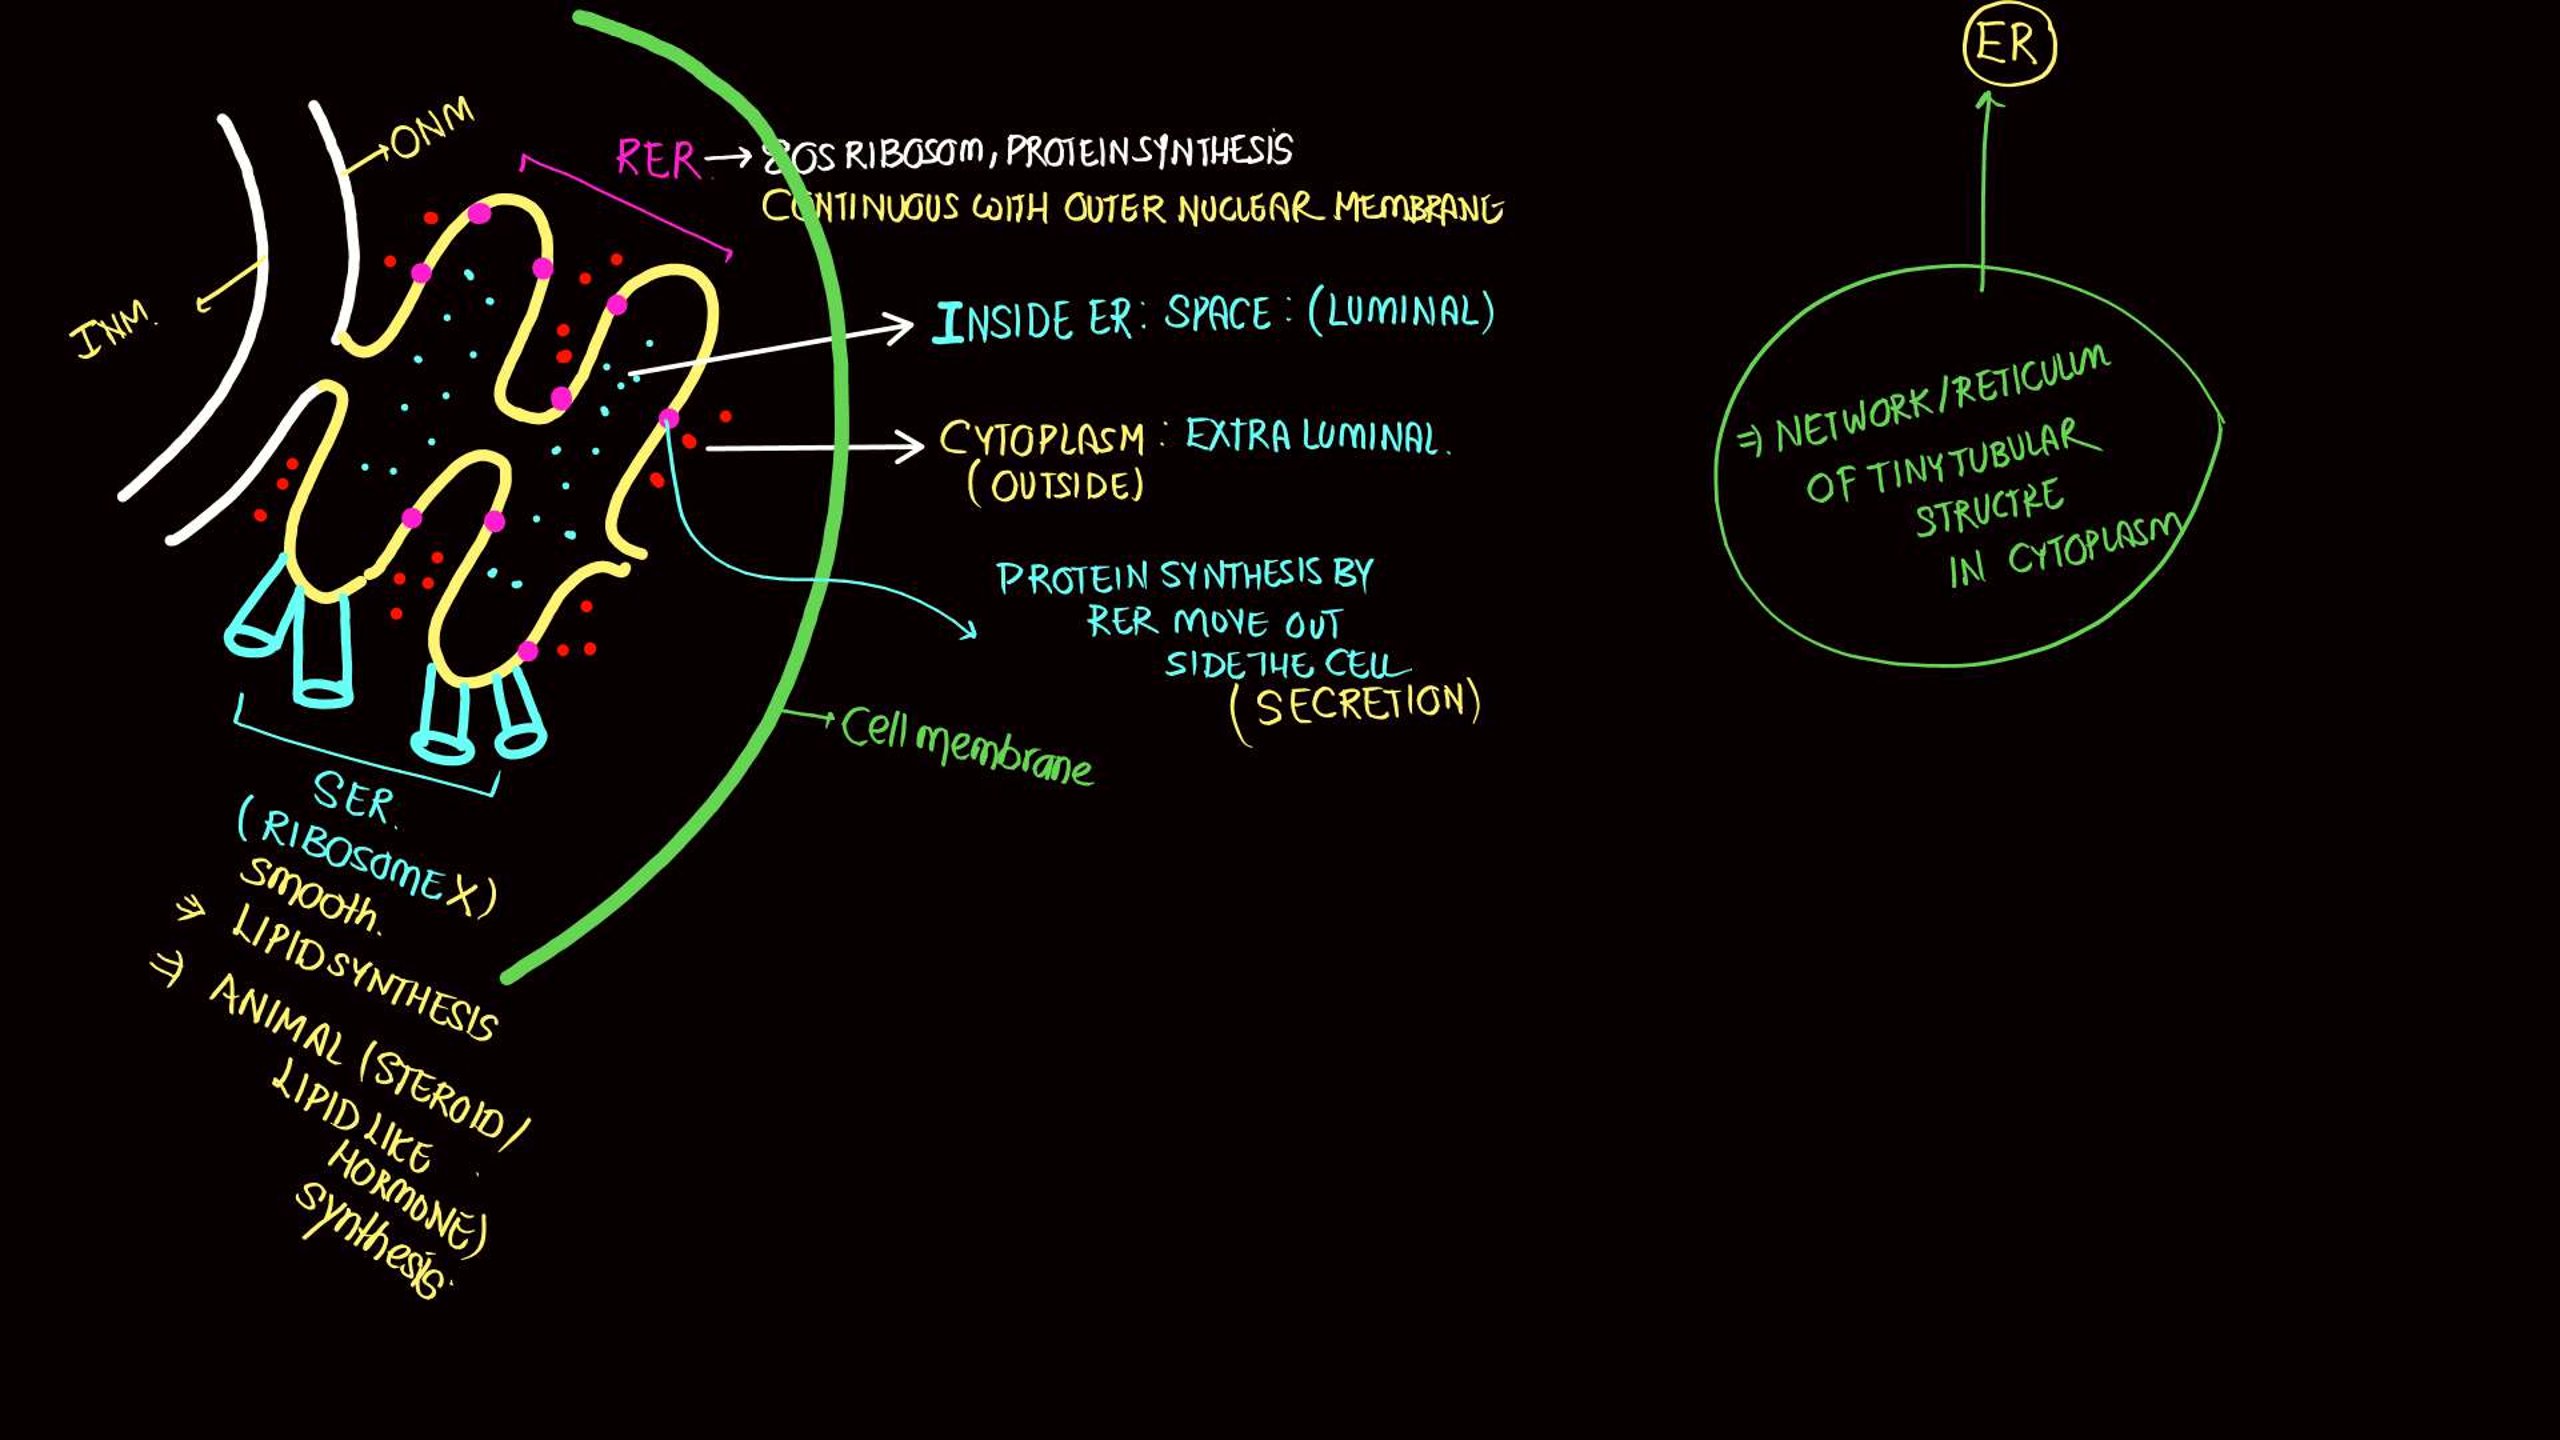 ER
ONM
RER → 80S RIBOSOM, PROTEIN SYNTHESIS
CONTINUOUS WITH OUTER NUCLEAR MEMBRANE
INM.
INSIDE ER: SPACE: (LUMINAL)
CYTOPLASM: EXTRA LUMINAL.
(OUTSIDE)
PROTEIN SYNTHESIS BY
RER MOVE OUT
SIDE THE CELL
(SECRETION)
Cell membrane
⇒ NETWORK/RETICULUM
OF TINY TUBULAR
STRUCTRE
IN CYTOPLASM
SER.
(RIBOSOME X)
smooth.
⇒ LIPID SYNTHESIS
⇒ ANIMAL (STEROID/
LIPID LIKE
HORMONE)
synthesis.